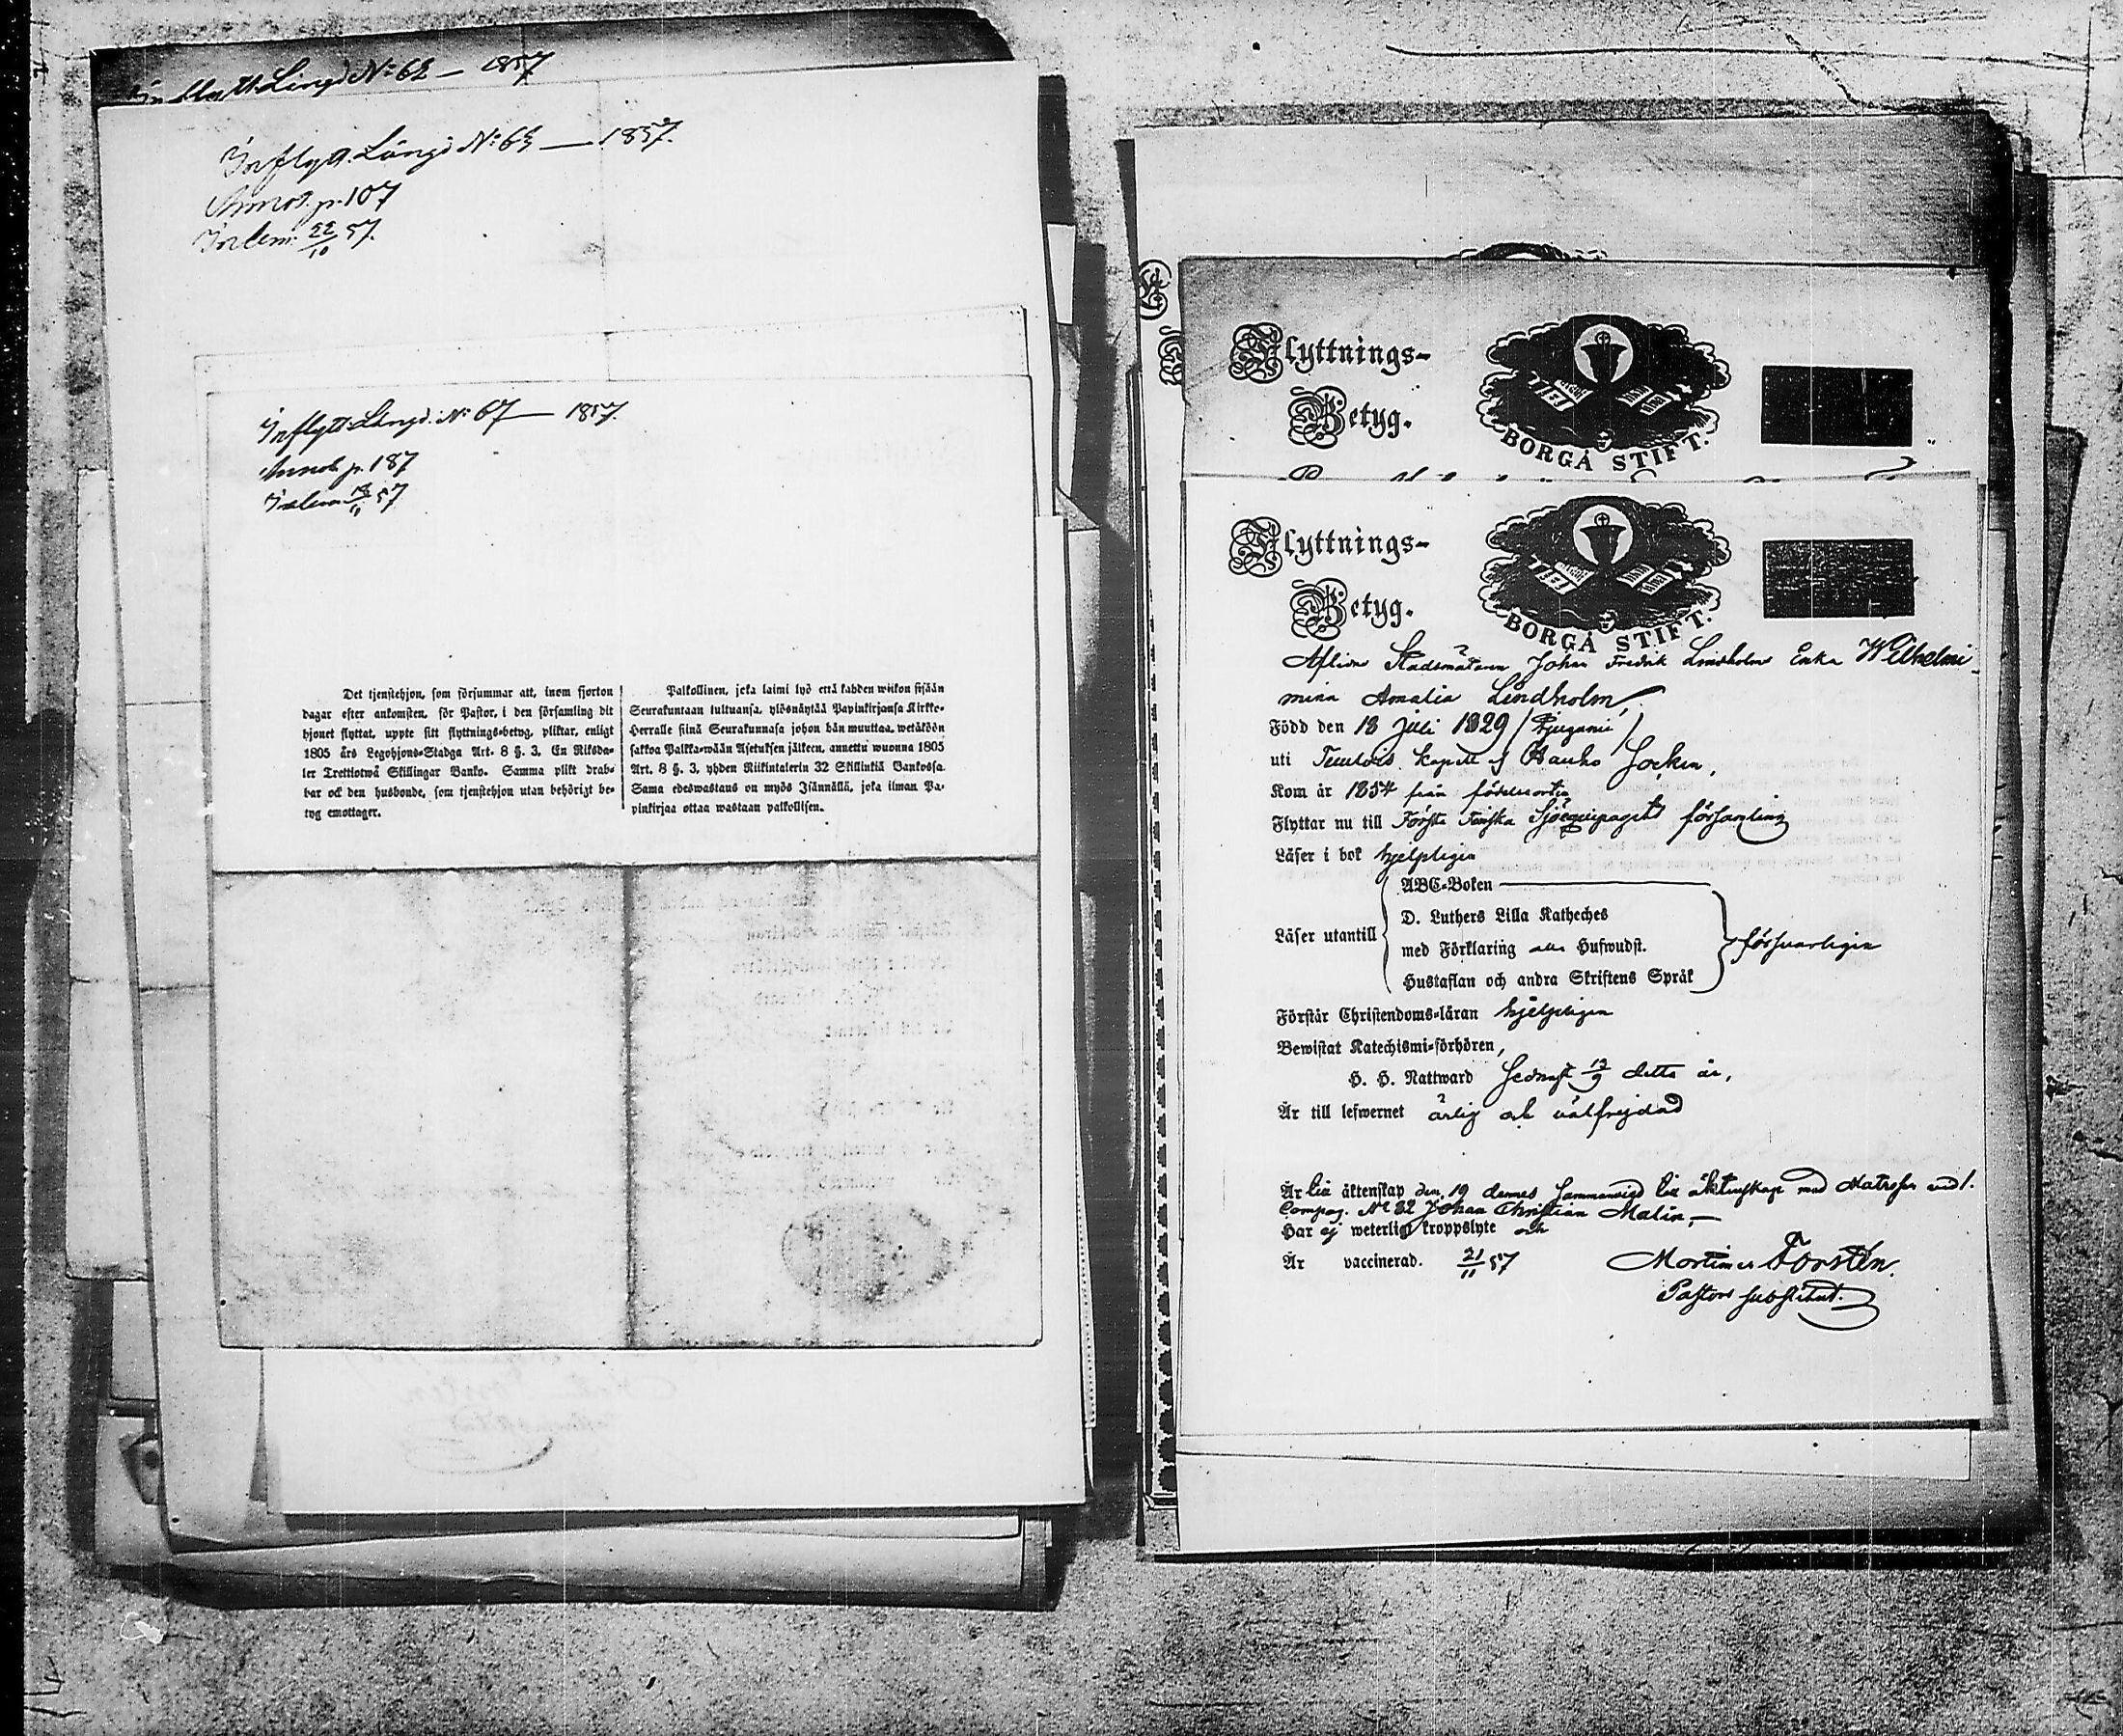 Inflytt. Längd N:o 62 — 1857
Inflytt. Längd N:o 63 — 1857.
Annot. p. 107
Inlem. 22/10 57.
Inflytt. Längd. N:o 67 — 1857.
Annot. p. 187
Inlem 57
Det tjenstehjon, som försummar att, inom fjorton
dagar efter ankomsten, för Pastor, i den församling dit
hjonet flyttat, uppte sitt flyttnings-betyg, pliktar, enligt
1805 års Legohjons-Stadga Art. 8 §. 3. En Riksda-
ler Trettiotwå Skillingar Banko. Samma plikt drab-
bar ock den husbonde, som tjenstehjon utan behörigt be-
tyg emottager.
Palkollinen, joka laimi lyö että kahden wiikon sisään
Seurakuntaan tultuansa, ylösnäytää Papinkirjansa Kirkko-
Herralle siinä Seurakunnasa johon hän muuttaa, wetäköön
sakkoa Palkka-wään Asetuksen jälkeen, annettu wuonna 1805
Art. 8 §. 3, yhden Riikintalerin 32 Skillinkiä Bankossa.
Sama edeswastaus on myös Isännällä, joka ilman Pa-
pinkirjaa ottaa wastaan palkollisen.
Flyttnings-
Betyg.
BORGÅ STIFT.
Flyttnings-
Betyg.
BORGÅ STIFT.
Aflidne Johan Fredrik Lindholms Enka Wilhelmi
mina Amalia Lindholm,
Född den 18 Juli 1829
uti Kapell af Hauho Socken,
Kom år 1854 från födelseorten
Flyttar nu till Första Finska Sjöequipagets församling
Läser i bok hjelpligen
Läser utantill
ABC-Boken
D. Luthers Lilla Katheches
med Förklaring Hufwudst.
Hustaflan och andra Skriftens Språk
försvarligen
Förstår Christendoms-läran hjelpligen
Bewistat Katechismi-förhören,
H. H. Nattward sednast 13/9 detta år,
Är till lefwernet ärlig och välfrejdad
Är äktenskap den 19 dennes Sammanvigd äktenskap med Matrosen vid 1.
Compag. N:o 32 Johan Christian Malin,—
Har ej weterligt kroppslyte och
Är vaccinerad. 21/11 57
Mortimer Forstén.
Pastors substitut.